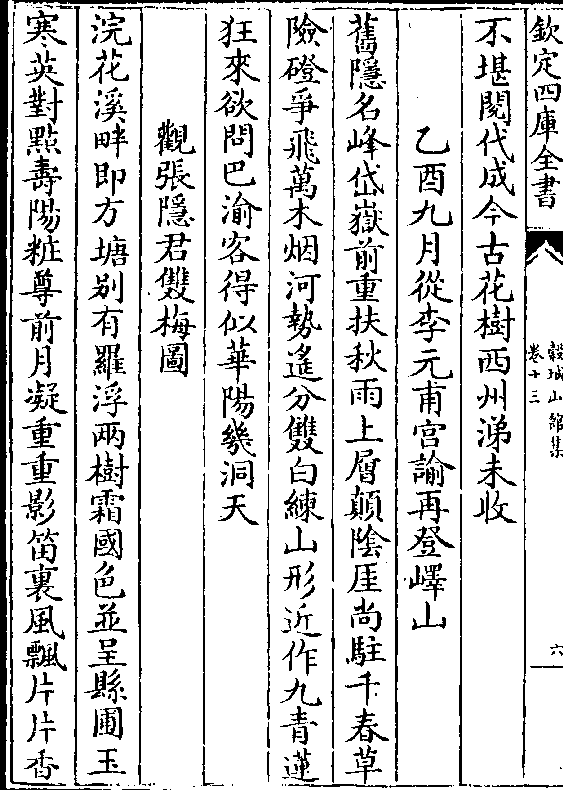 欽定四庫全書
穀城山館集
卷十三
六
不堪閱代成今古花樹西州涕未收
乙酉九月從李元甫宮諭再登嶧山
舊隱名峰岱嶽前重扶秋雨上層顛陰厓尚駐千春草
險磴爭飛萬木烟河勢遙分雙白練山形近作九青蓮
狂來欲問巴渝客得似華陽幾洞天
觀張隱君雙梅圖
浣花溪畔即方塘别有羅浮兩樹霜國色並呈縣圃玉
寒英對點壽陽粧尊前月凝重重影笛裏風飄片片香